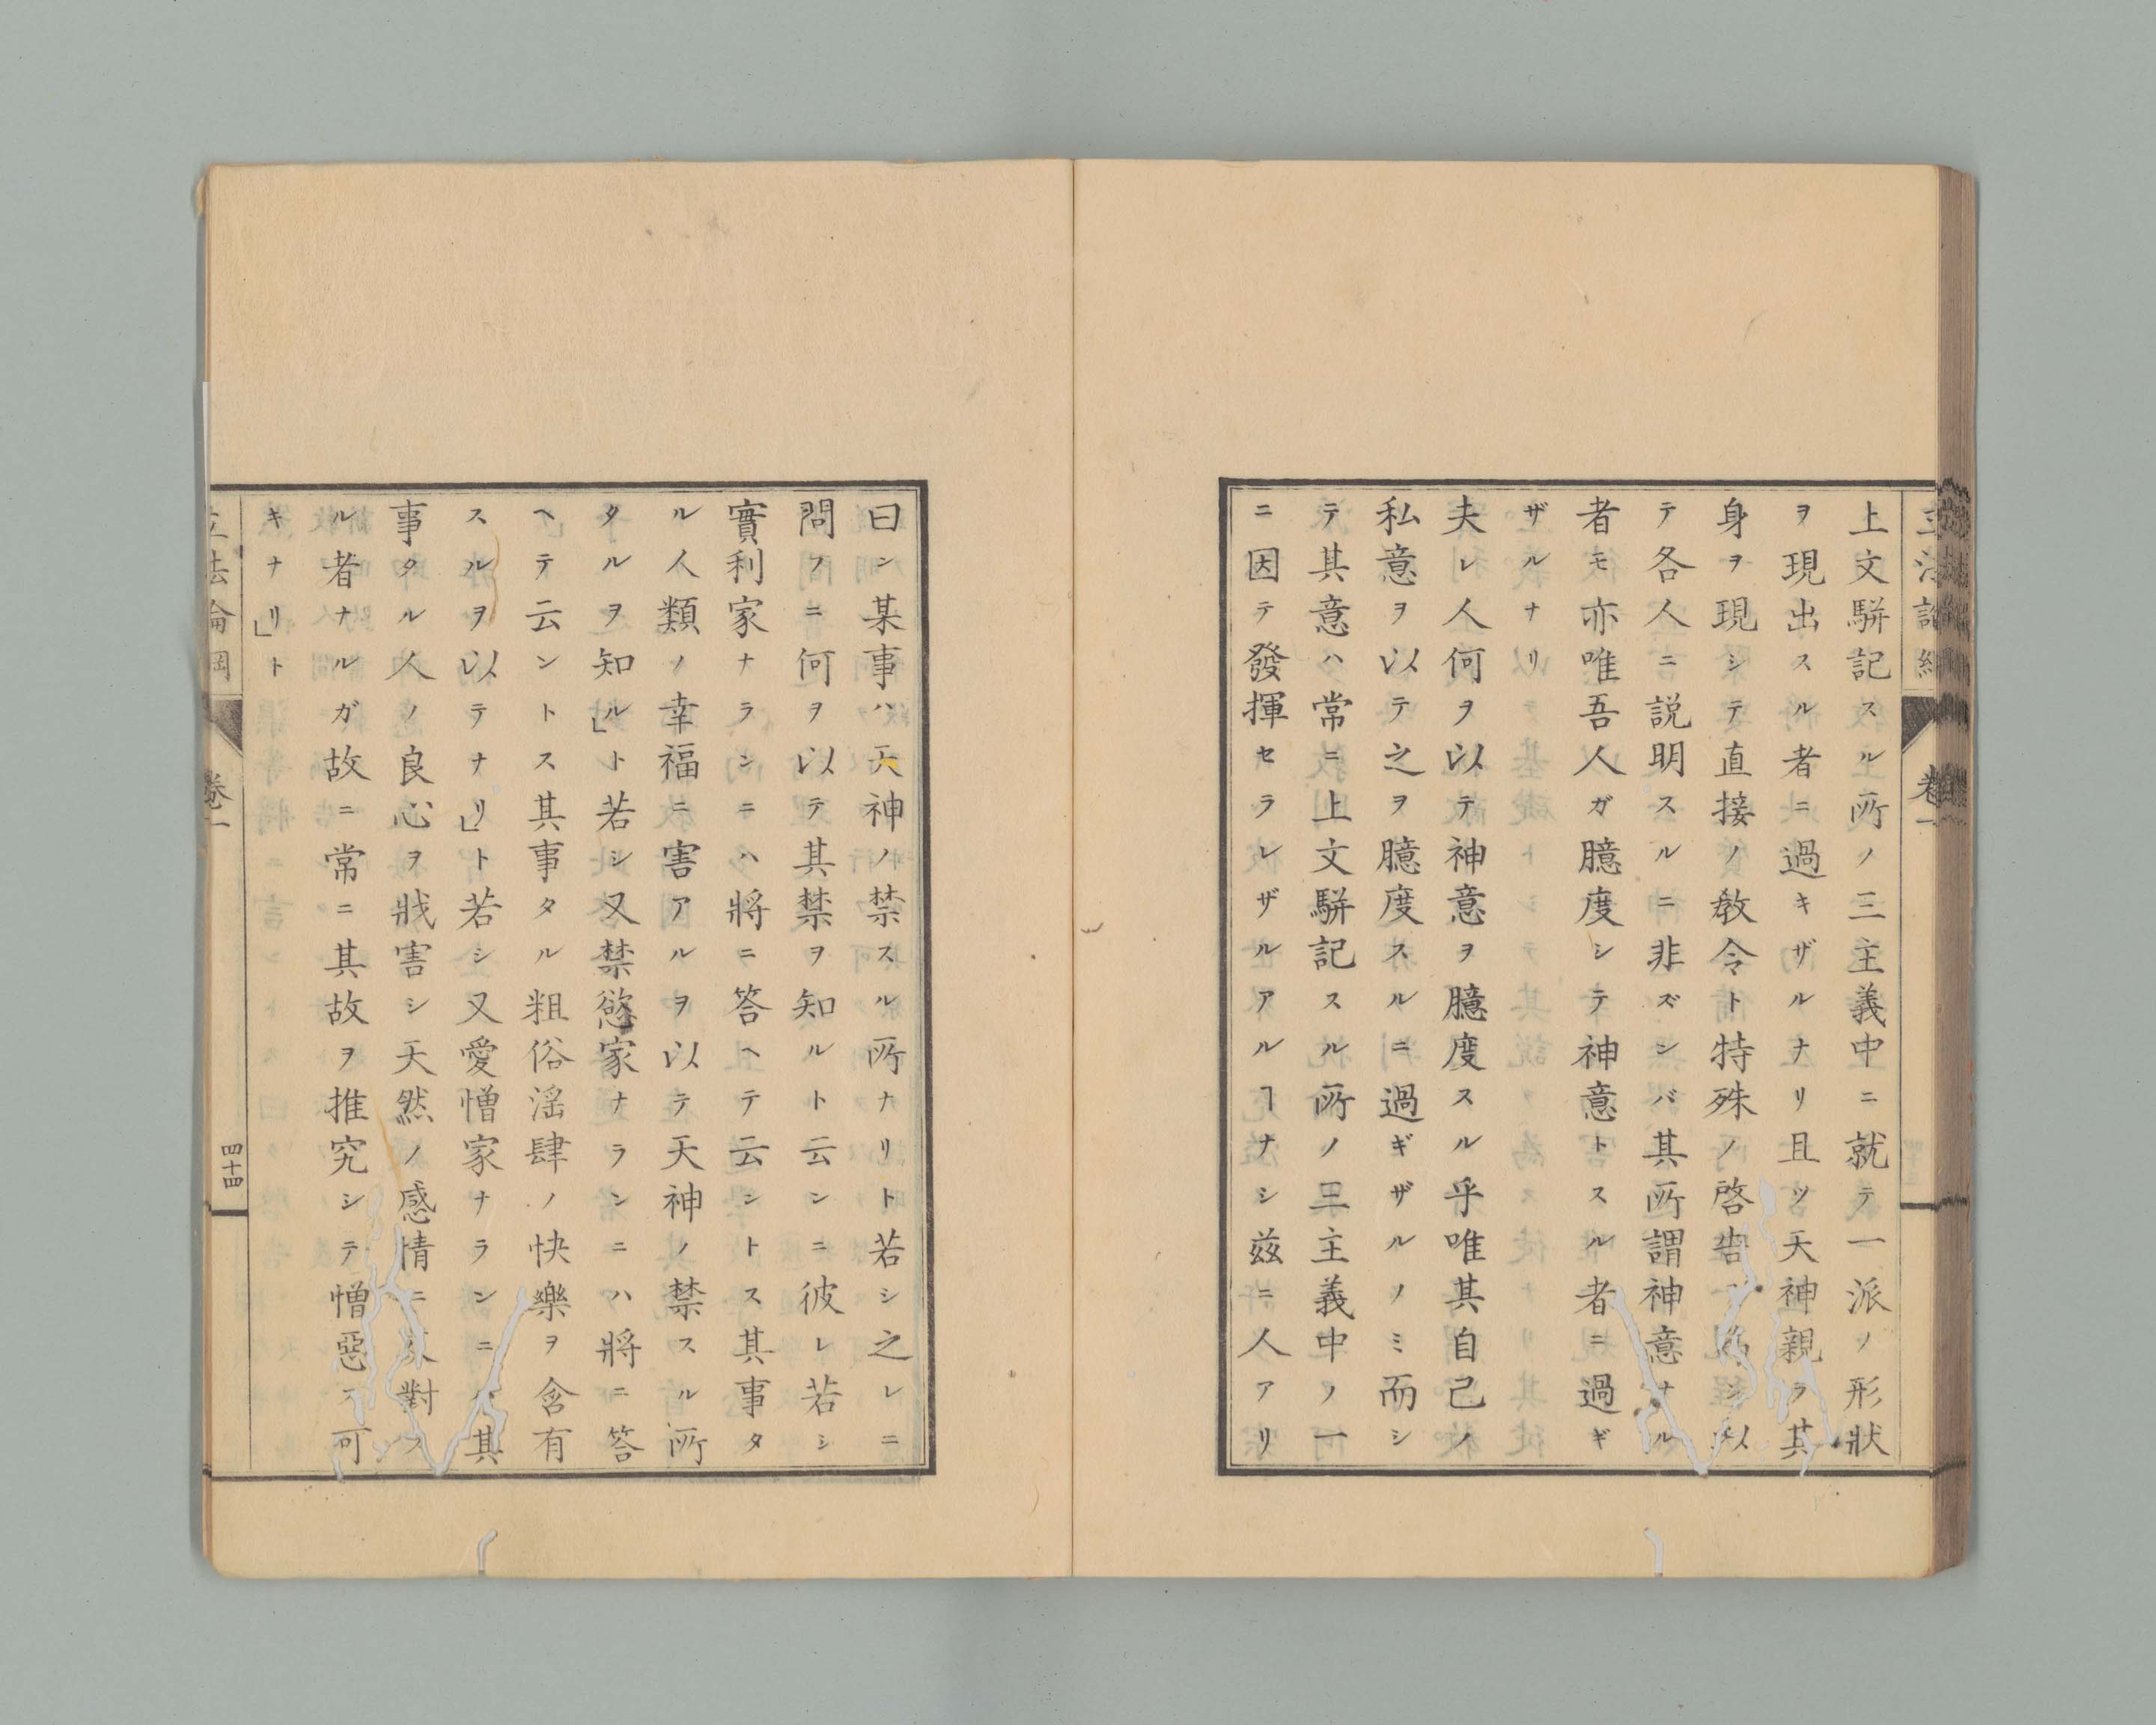 上文駢記スル所ノ三主義中ニ就テ一派ノ形狀
ヲ現出スル者ニ過キザルナリ且ツ天神親ラ其
身ヲ現シテ直接ノ敎令ト特殊ノ啓告シ以
テ各人ニ説明スルニ非ズンバ其所謂神意ナル
者モ亦唯吾人ガ臆度シテ神意トスル者ニ過ギ
ザルナリ
夫レ人何ヲ以テ神意ヲ臆度スル乎唯其自己ノ
私意ヲ以テ之ヲ臆度スルニ過ギザルノミ而シ
テ其意ハ常ニ上文駢記スル所ノ三主義中ノ一
ニ因テ發揮セラレザルアルヿナシ茲ニ人アリ
曰ン某事ハ天神ノ禁スル所ナリト若シ之レニ
問フニ何ヲ以テ其禁ヲ知ルト云ンニ彼レ若シ
實利家ナランニハ將ニ答ヘテ云ントス其事タ
ル人類ノ幸福ニ害アルヲ以テ天神ノ禁スル所
タルヲ知ル」ト若シ又禁慾家ナランニハ將ニ答
ヘテ云ントス其事タル粗俗淫肆ノ快樂ヲ含有
スルヲ以テナリ」ト若シ又愛憎家ナランニハ其
事タル人ノ良心ヲ戕害シ天然ノ感情ニ對ス
ル者ナルガ故ニ常ニ其故ヲ推究シテ憎惡ス可
キナリ」ト
立法論綱
卷一
四十四